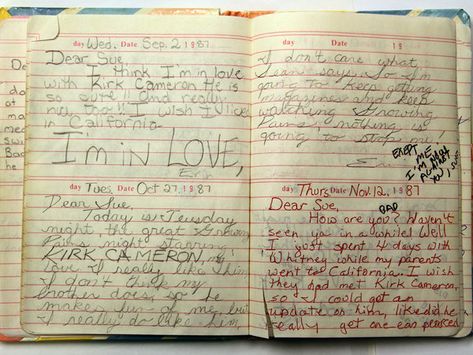 day Wed. Date Sep. 2 1987
Dear Sue,
I think I'm in love
with Kirk Cameron. He is
so cute and really
nice, too!! I wish I live
in California.
I'm in LOVE,
Erin
day Tues. Date Oct 27, 1987
Dear Sue,
Today is Tuesday
night the great Growing
Pains night starring
KIRK CAMERON, my
love. I really like him
I don't think my
brother does, so he
makes fun of me but
I really do like him
day Date 19
I don't care what
Sean says. So I'm
going to keep getting
magazines and keep
watching Growing
Pains, nothing is
going to stop me!
Erin
EXCEPT
ME
I'M DAD
AGAINST
YOU
day Thurs Date Nov. 12, 1987
Dear Sue,
DAD
How are you? Haven't
seen ya in a while! Well
I just spent 4 days with
Whitney while my parents
went to California. I wish
they had met Kirk Cameron,
so I could get an
update on him, like did he
really get one ear pierced